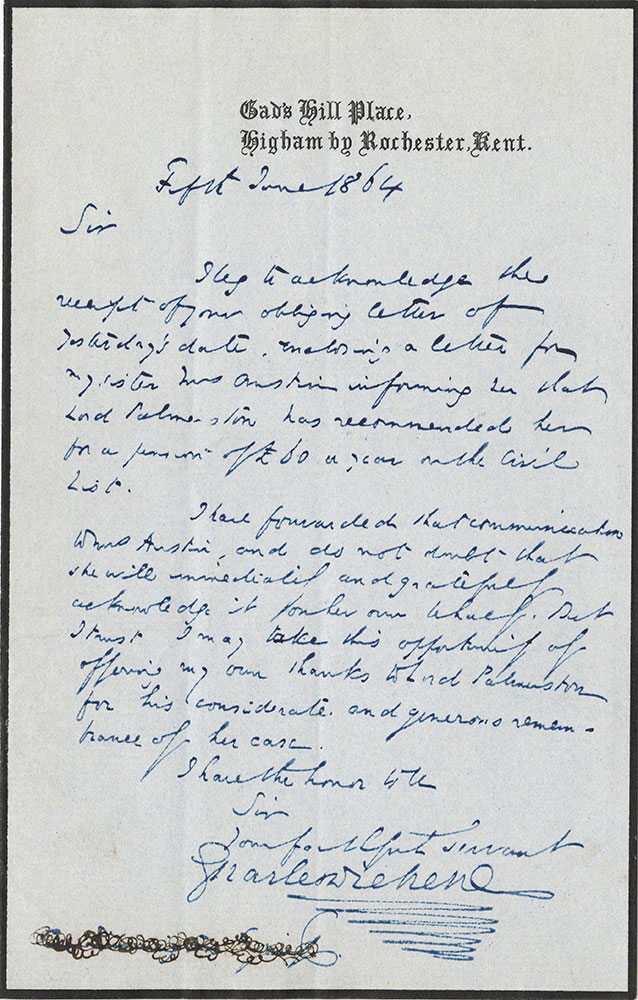 Gad's Hill Place,
Higham by Rochester, Kent.
Fifth June 1864
Sir
I beg to acknowledge the
receipt of your obliging letter of
yesterday's date, enclosing a letter for
my sister Mrs Austin informing her that
Lord Palmerston has recommended her
for a pension of £60 a year on the Civil
List.
I have forwarded that communication
to Mrs Austin, and do not doubt that
she will immediately and gratefully
acknowledge it on her own behalf. But
I trust I may take this opportunity of
offering my own thanks to Lord Palmerston
for his considerate and generous remem-
brance of her case.
I have the honor to be
Sir
Your faithful Servant
Charles Dickens